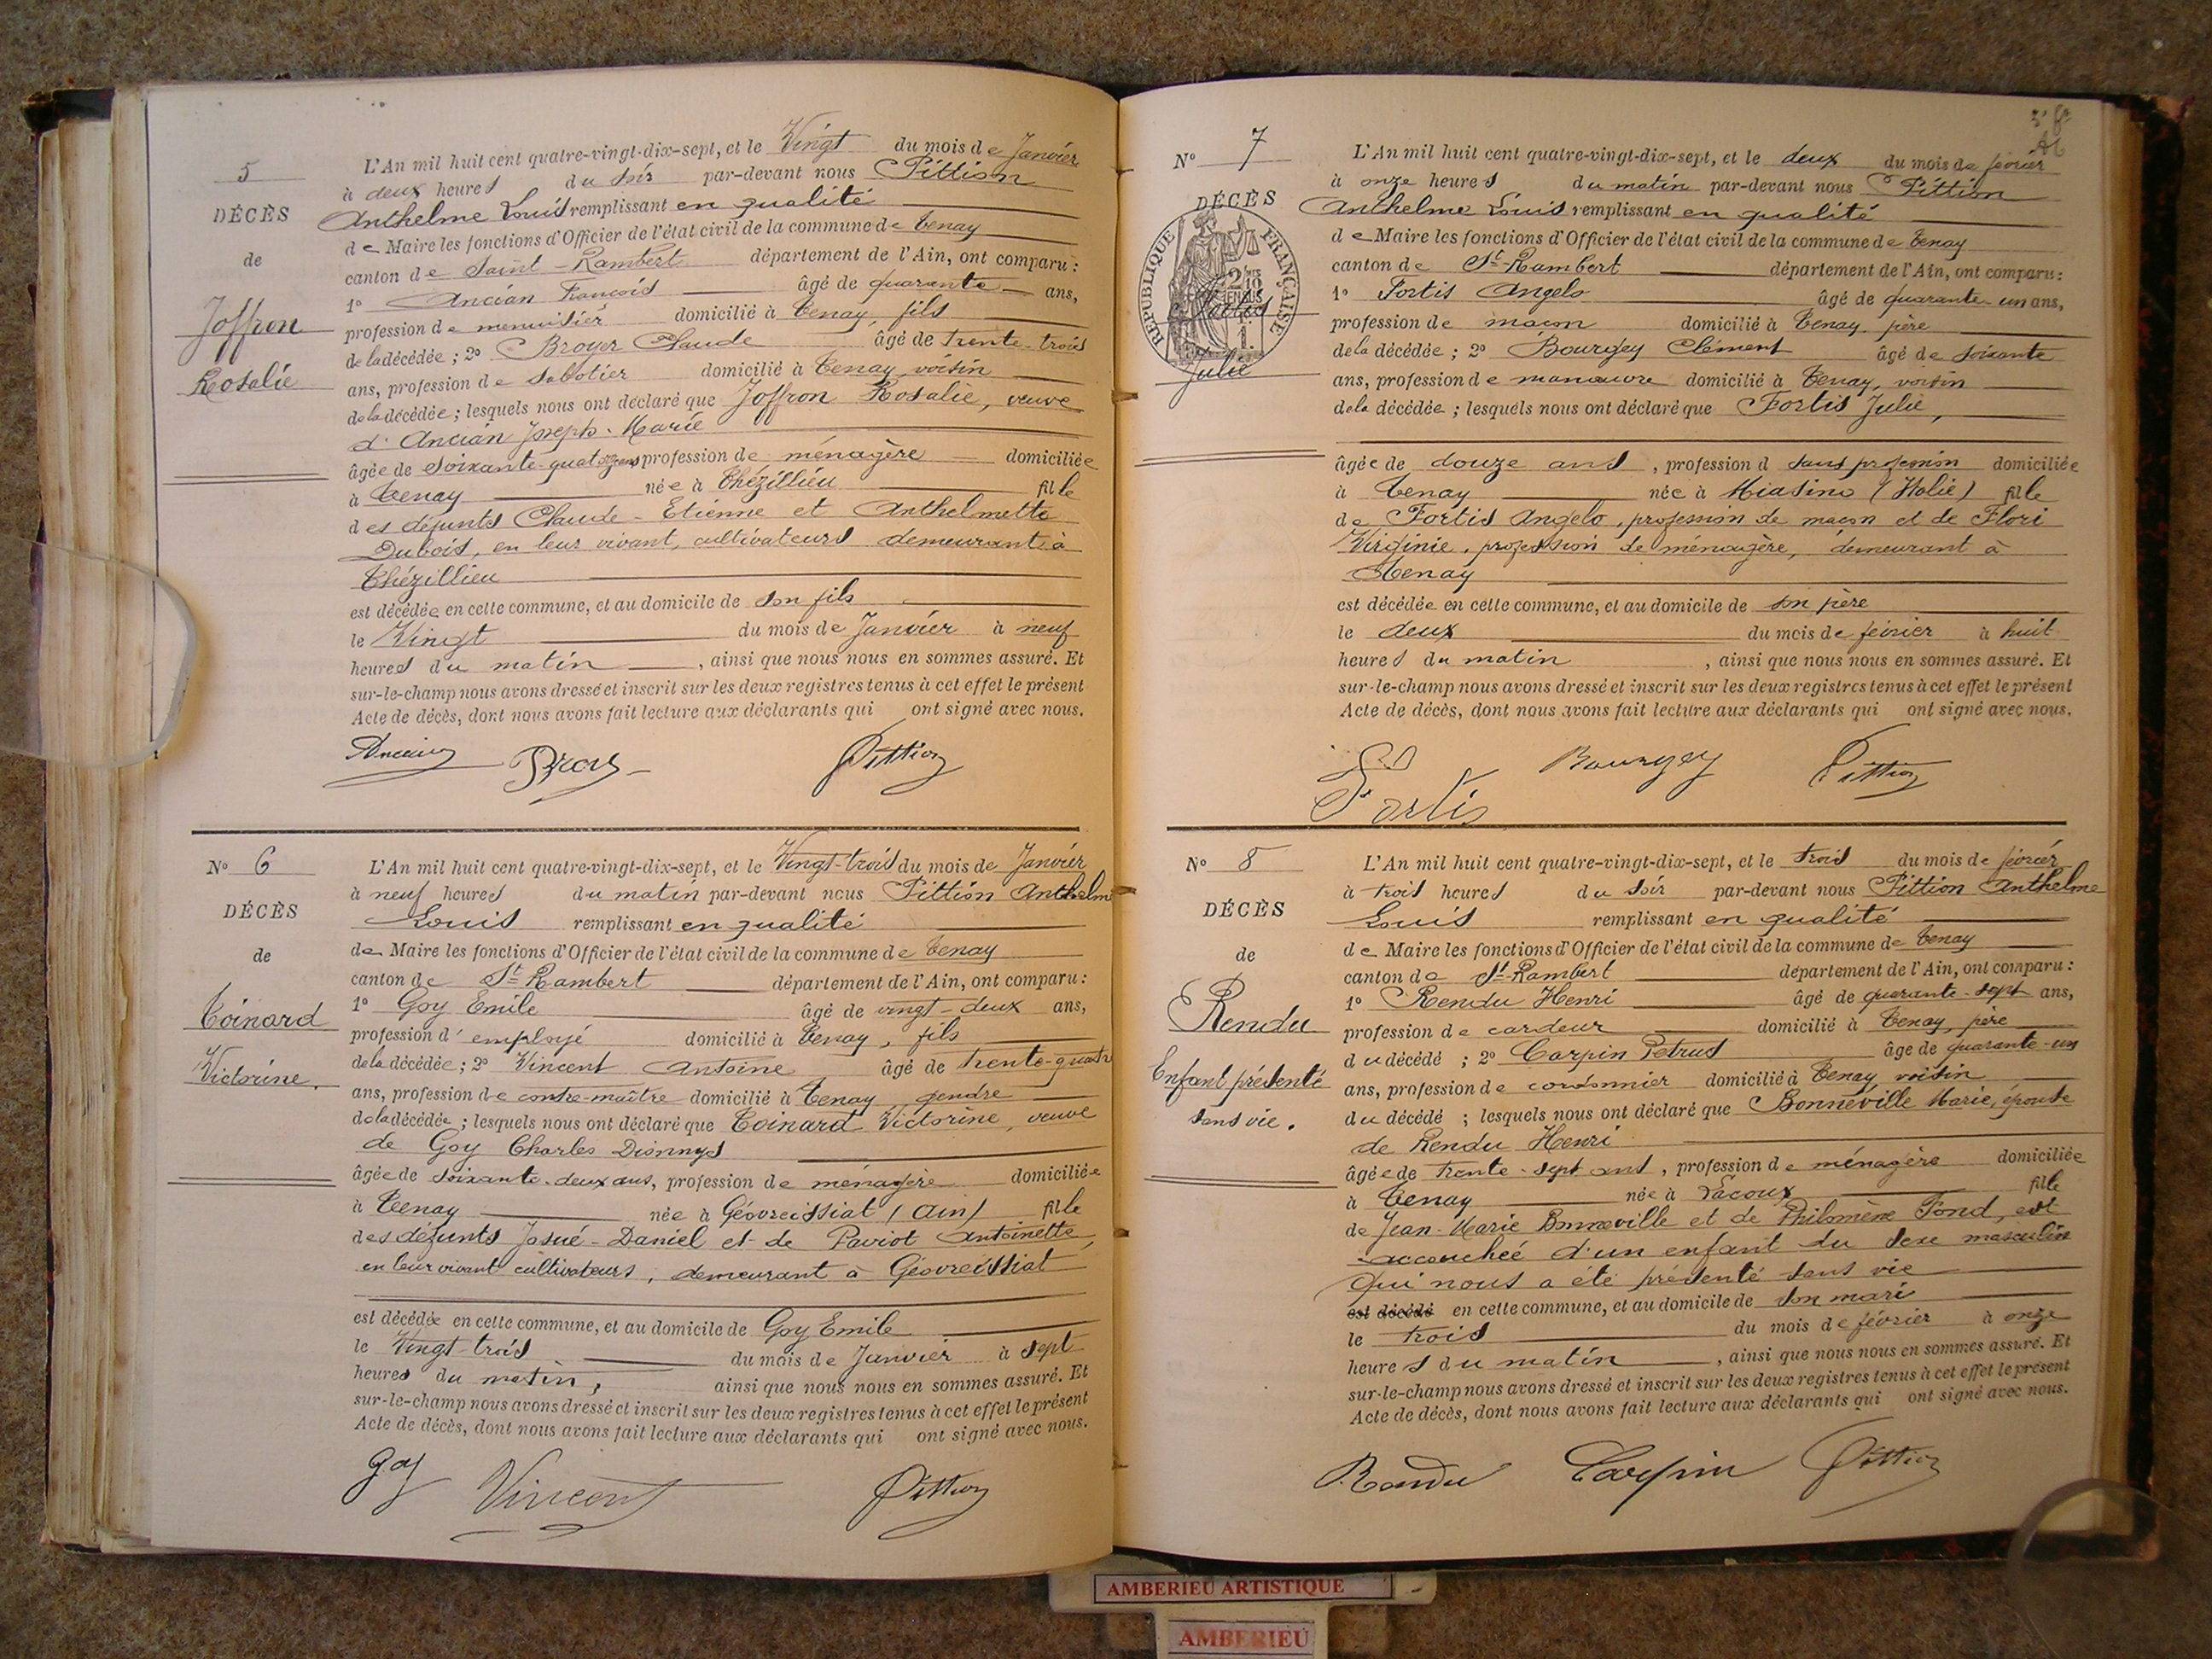 5
DÉCÈS
de
Joffron
Rosalie
L'An mil huit cent quatre-vingt-dix-sept, et le Vingt du mois de Janvier
à deux heures du soir par-devant nous Pittion
Anthelme Louis remplissant en qualité
de Maire les fonctions d'Officier de l'état civil de la commune de Tenay
canton de Saint-Rambert département de l'Ain, ont comparu :
1° Ancian François âgé de quarante ans,
profession de menuisier domicilié à Tenay, fils
de la décédée ; 2° Broyer Claude âgé de trente-trois
ans, profession de sabotier domicilié à Tenay, voisin
de la décédée ; lesquels nous ont déclaré que Joffron Rosalie, veuve
d'Ancian Joseph-Marie
âgée de soixante-quatorze ans profession de ménagère domiciliée
à Tenay née à Thézillieu fille
des défunts Claude-Etienne et Anthelmette
Dubois, en leur vivant, cultivateurs demeurant à
Thézillieu
est décédée en cette commune, et au domicile de son fils
le Vingt du mois de Janvier à neuf
heures du matin, ainsi que nous nous en sommes assuré. Et
sur-le-champ nous avons dressé et inscrit sur les deux registres tenus à cet effet le présent
Acte de décès, dont nous avons fait lecture aux déclarants qui ont signé avec nous.
Ancian Broy Pittion
N° 6
DÉCÈS
de
Toinard
Victorine.
L'An mil huit cent quatre-vingt-dix-sept, et le Vingt-trois du mois de Janvier
à neuf heures du matin par-devant nous Pittion Anthelme
Louis remplissant en qualité
de Maire les fonctions d'Officier de l'état civil de la commune de Tenay
canton de St-Rambert département de l'Ain, ont comparu :
1° Goy Emile âgé de vingt-deux ans,
profession d'employé domicilié à Tenay, fils
de la décédée ; 2° Vincent Antoine âgé de trente-quatre
ans, profession de contre-maître domicilié à Tenay, gendre
de la décédée ; lesquels nous ont déclaré que Toinard Victorine, veuve
de Goy Charles Dionnys
âgée de soixante-deux ans, profession de ménagère domiciliée
à Tenay née à Géovreissiat (Ain) fille
des défunts Josué-Daniel et de Paviot Antoinette,
en leur vivant cultivateurs, demeurant à Géovreissiat
est décédée en cette commune, et au domicile de Goy Emile
le Vingt-trois du mois de Janvier à sept
heures du matin, ainsi que nous nous en sommes assuré. Et
sur-le-champ nous avons dressé et inscrit sur les deux registres tenus à cet effet le présent
Acte de décès, dont nous avons fait lecture aux déclarants qui ont signé avec nous.
Goy Vincent Pittion
N° 7
DÉCÈS
RÉPUBLIQUE FRANÇAISE
Fortis
Julie
L'An mil huit cent quatre-vingt-dix-sept, et le deux du mois de février
à onze heures du matin par-devant nous Pittion
Anthelme Louis remplissant en qualité
de Maire les fonctions d'Officier de l'état civil de la commune de Tenay
canton de St-Rambert département de l'Ain, ont comparu :
1° Fortis Angelo âgé de quarante-un ans,
profession de maçon domicilié à Tenay père
de la décédée ; 2° Bourgey Clément âgé de soixante
ans, profession de manœuvre domicilié à Tenay, voisin
de la décédée ; lesquels nous ont déclaré que Fortis Julie,
âgée de douze ans, profession d sans profession domiciliée
à Tenay née à Miasino (Italie) fille
de Fortis Angelo, profession de maçon et de Flori
Virginie, profession de ménagère, demeurant à
Tenay
est décédée en cette commune, et au domicile de son père
le deux du mois de février à huit
heures du matin, ainsi que nous nous en sommes assuré. Et
sur-le-champ nous avons dressé et inscrit sur les deux registres tenus à cet effet le présent
Acte de décès, dont nous avons fait lecture aux déclarants qui ont signé avec nous.
Fortis Bourgey Pittion
N° 8
DÉCÈS
de
Rendu
Enfant présenté
sans vie.
L'An mil huit cent quatre-vingt-dix-sept, et le trois du mois de février
à trois heures du soir par-devant nous Pittion Anthelme
Louis remplissant en qualité
de Maire les fonctions d'Officier de l'état civil de la commune de Tenay
canton de St-Rambert département de l'Ain, ont comparu :
1° Rendu Henri âgé de quarante-sept ans,
profession de cardeur domicilié à Tenay, père
du décédé ; 2° Carpin Petrus âgé de quarante-un
ans, profession de cordonnier domicilié à Tenay voisin
du décédé ; lesquels nous ont déclaré que Bonneville Marie, épouse
de Rendu Henri
âgée de trente-sept ans, profession de ménagère domiciliée
à Tenay née à Lacoux fille
de Jean-Marie Bonneville et de Philomène Fond, est
accouchée d'un enfant du sexe masculin
qui nous a été présenté sans vie
est décédé en cette commune, et au domicile de son mari
le trois du mois de février à onze
heures du matin, ainsi que nous nous en sommes assuré. Et
sur-le-champ nous avons dressé et inscrit sur les deux registres tenus à cet effet le présent
Acte de décès, dont nous avons fait lecture aux déclarants qui ont signé avec nous.
Rendu Carpin Pittion
AMBERIEU ARTISTIQUE
AMBERIEU